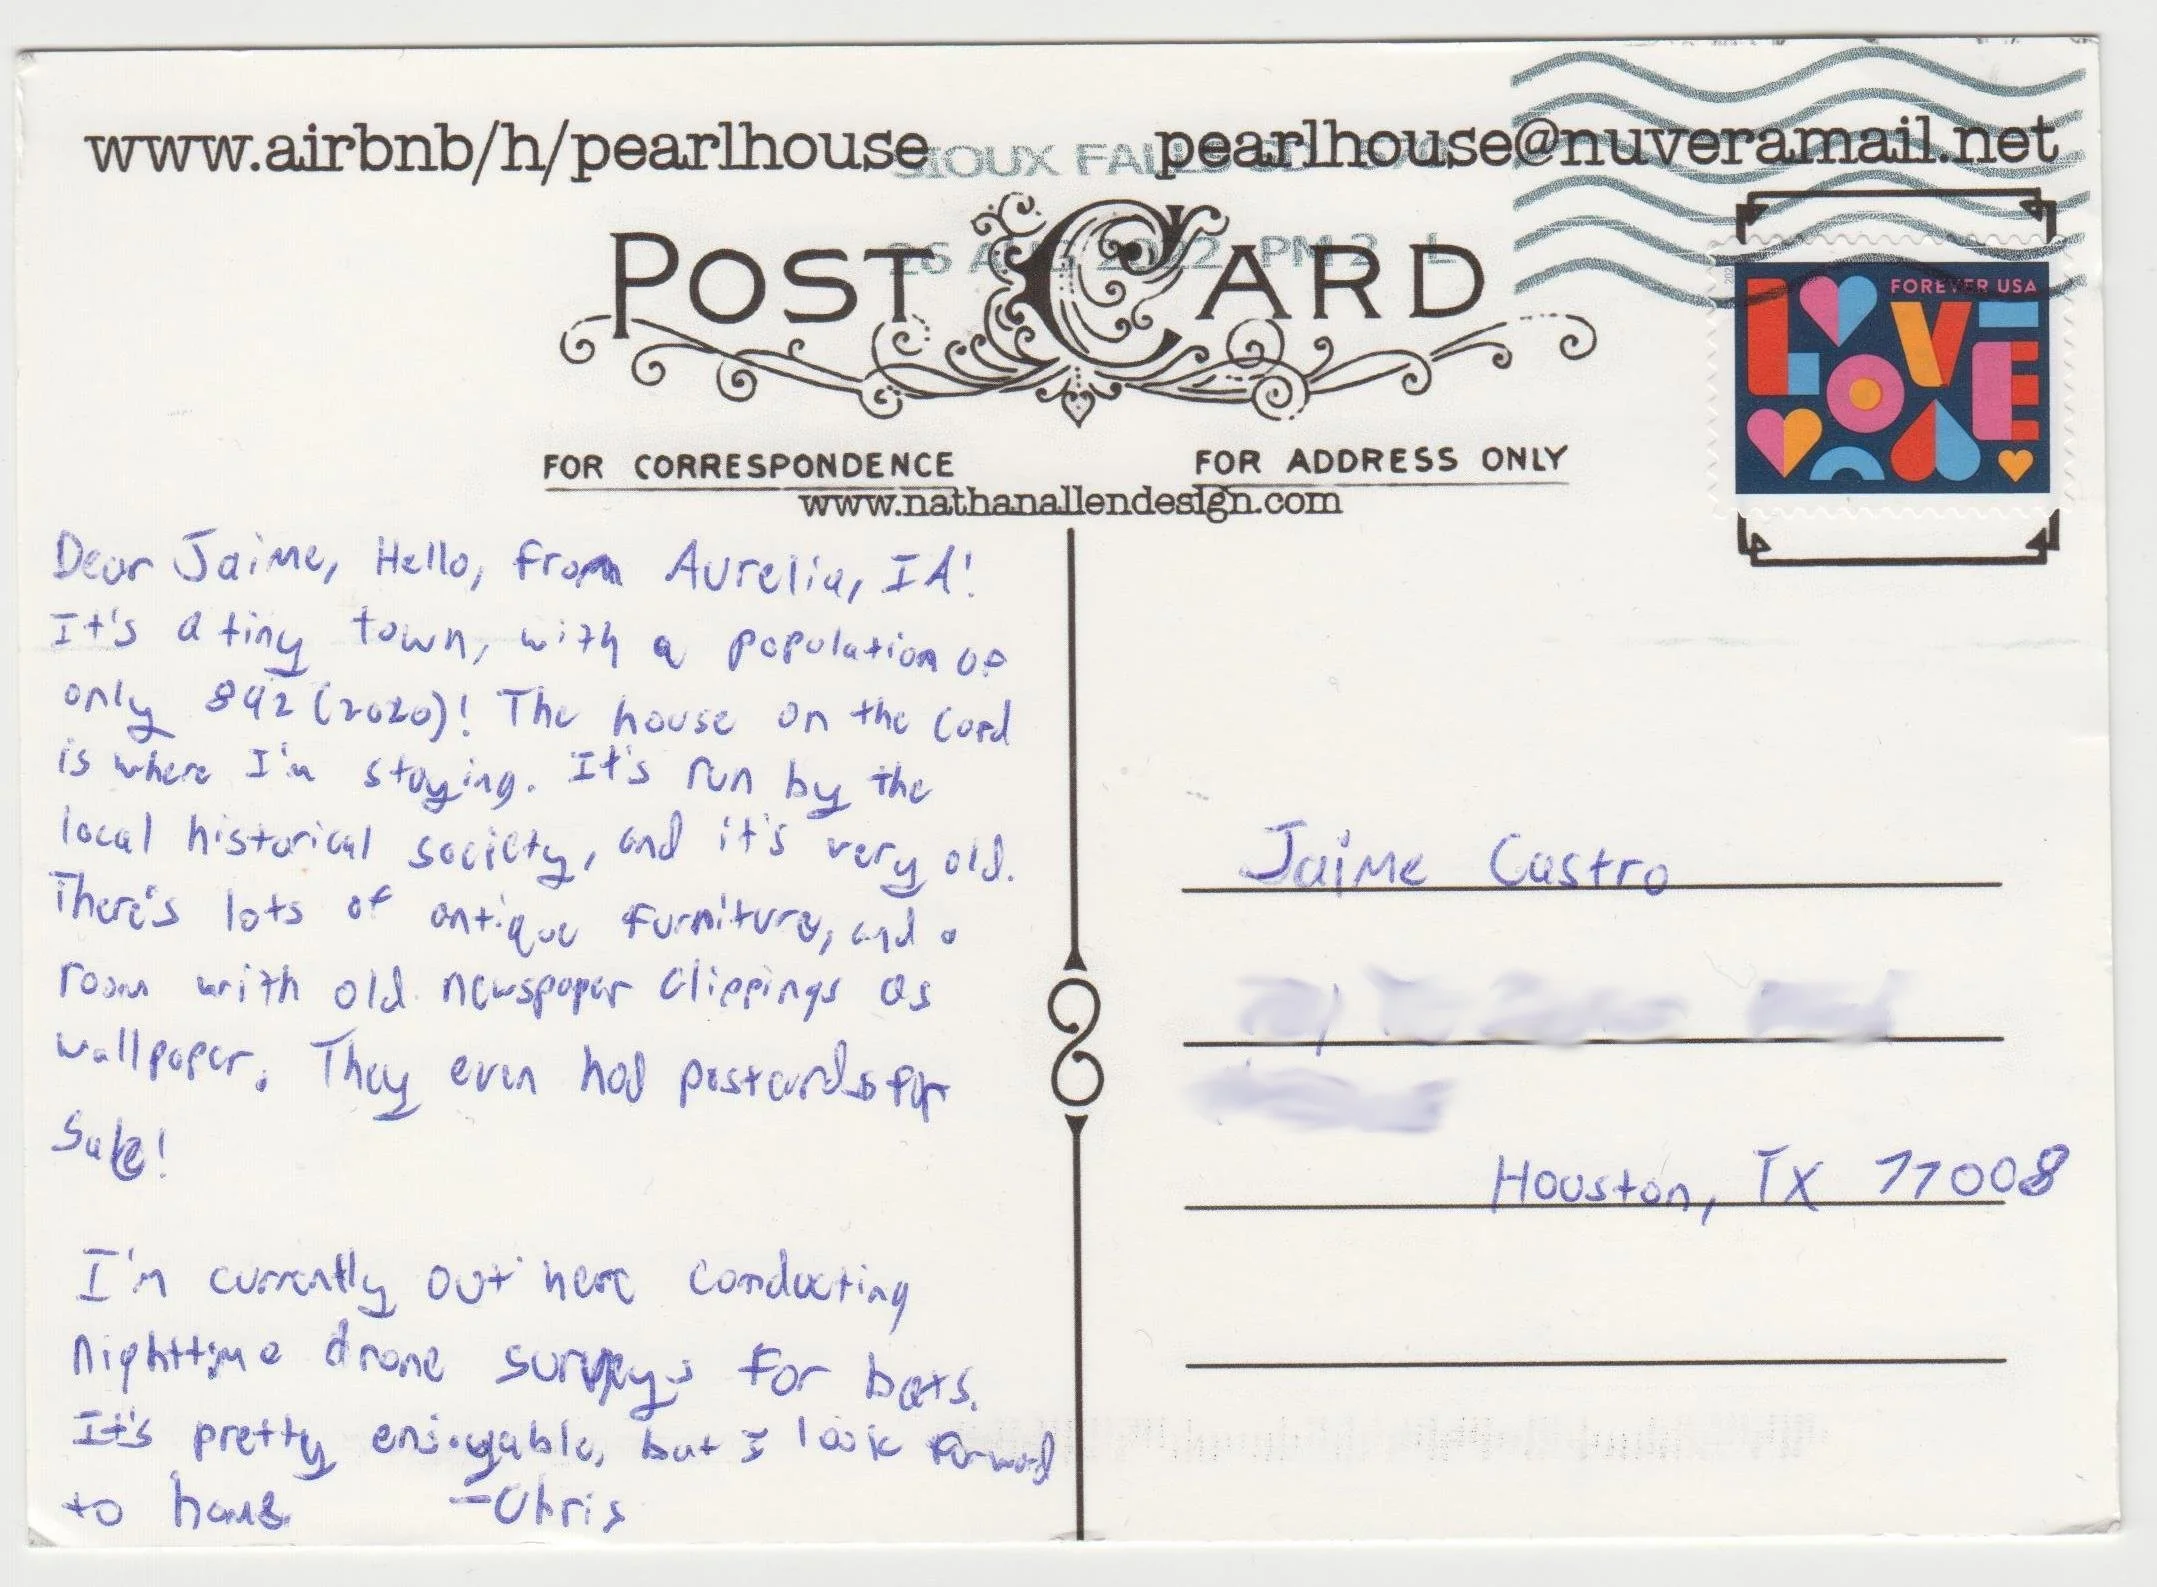 www.airbnb/h/pearlhouse pearlhouse@nuveramail.net
SIOUX FALLS SD
26 AUG 2022 PM 2 L
POST CARD
FOREVER USA
LOVE
FOR CORRESPONDENCE
FOR ADDRESS ONLY
www.nathanallendesign.com
Dear Jaime, Hello, from Aurelia, IA!
It's a tiny town, with a population of
only 892 (2020)! The house on the card
is where I'm staying. It's run by the
local historical society, and it's very old.
There's lots of antique furniture, and a
room with old newspaper clippings as
wallpaper. They even had postcards for
sale!
I'm currently out here conducting
nighttime drone surveys for bats.
It's pretty enjoyable, but I look forward
to home -Chris
Jaime Castro
Houston, TX 77008